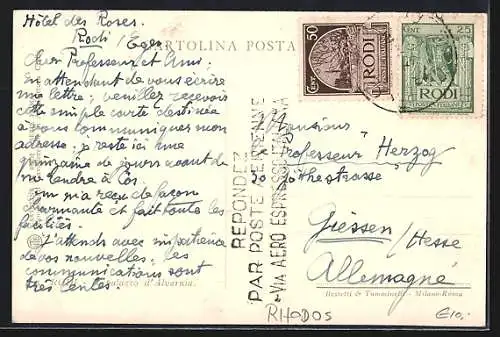 Hôtel des Roses.
Rodi / Egeo
CARTOLINA POSTA
Cher Professeur et Ami:
en attendant de vous écrire
ma lettre; veuillez recevoir
cette simple carte destinée
à vous communiquer mon
adresse: je reste ici une
quinzaine de jours avant de
me rendre à Cos.
On m'a reçu de façon
charmante et fait toute les
facilités.
J'attends avec impatience
de vos nouvelles: les
communications sont
très lentes.
Palazzo d'Alvernia.
REPONDEZ
PAR POSTE AERIENNE
VIA AERO ESPRESSO ITALIANA
CENT. 50
RODI
CENT 25
RODI
Monsieur
Professeur Herzog
Göthestrasse
Giessen / Hesse
Allemagne
Bestetti & Tumminelli - Milano-Roma
RHODOS
€10,-